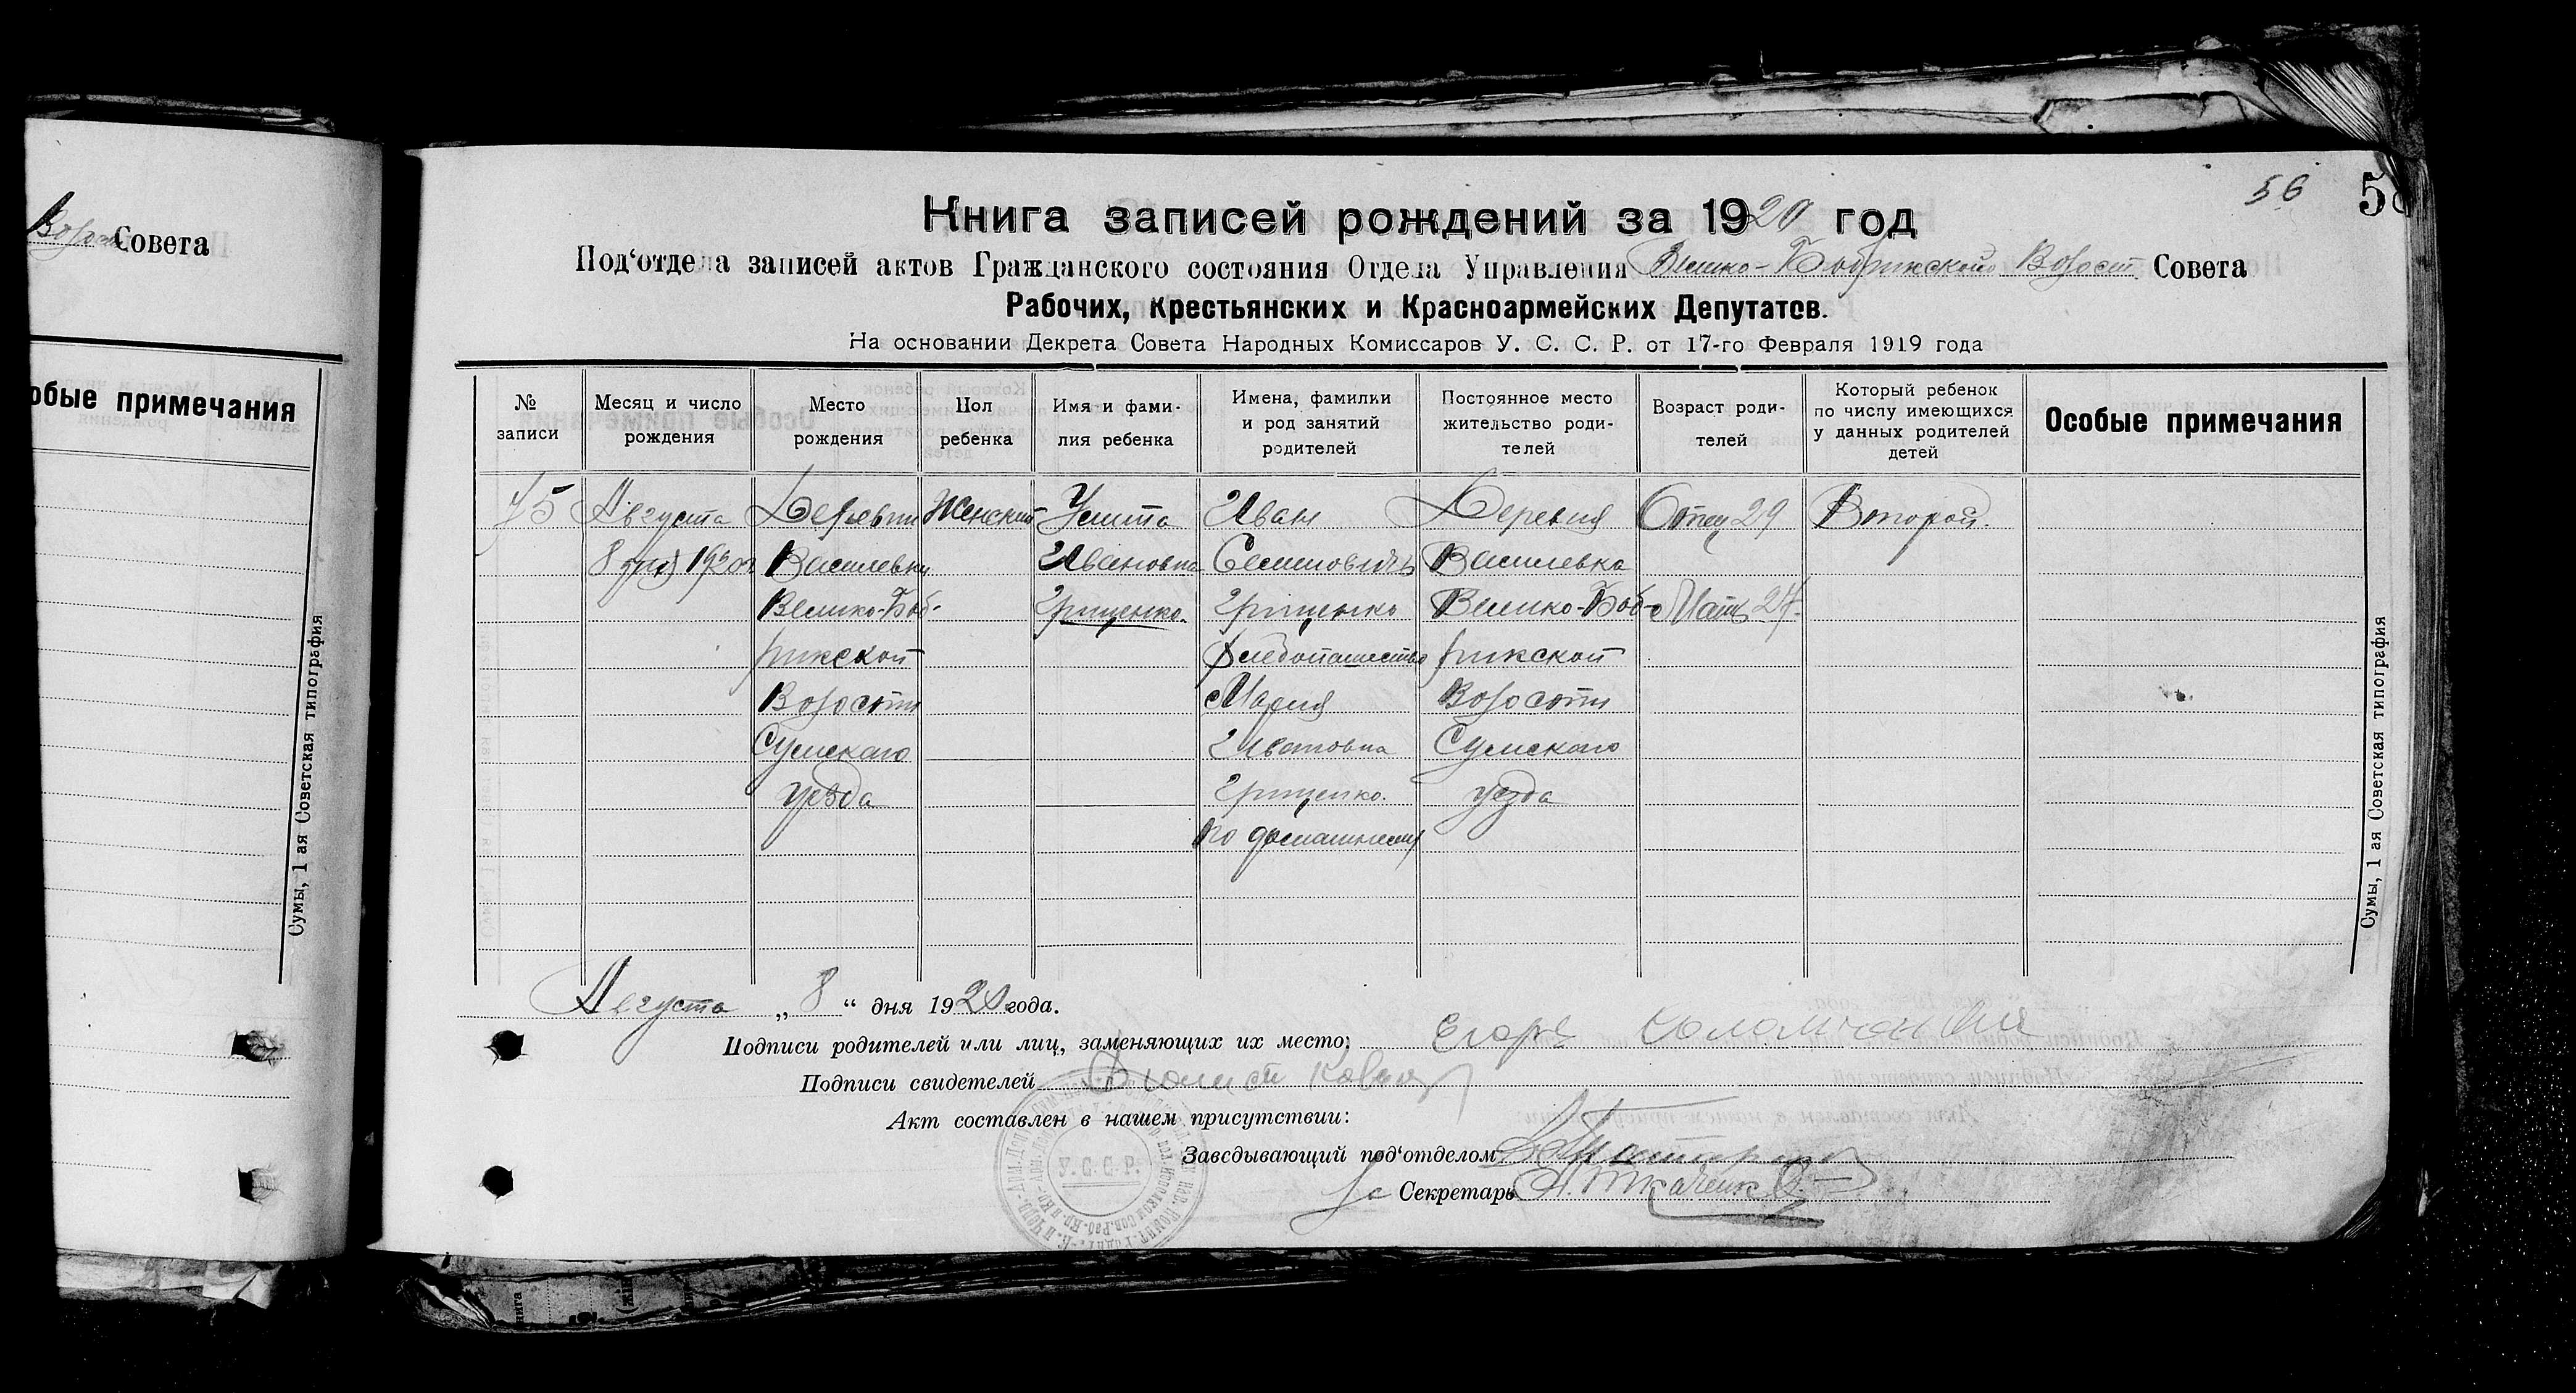 Волост Совета
обые примечания
Сумы, 1 ая Советская типография
56
5
Книга записей рождений за 1920 год
Под‘отдела записей актов Гражданского состояния Отдела Управления Велико-Бобрикской Волост. Совета
Рабочих, крестьянских и Красноармейских Депутатов.
На основании Декрета Совета Народных Комиссаров У. С. С. Р. от 17-го Февраля 1919 года
№ записи
Месяц и число рождения
Место рождения
Пол ребенка
Имя и фами- лия ребенка
Имена, фамилии и род занятий родителей
Постоянное место жительство роди- телей
Возраст роди- телей
Который ребенок по числу имеющихся у данных родителей детей
Особые примечания
75
Августа
8 дня 1920г
Деревни
Василевки
Велико-Боб-
рикской
Волости
Сумскаго
уезда
Женский
Ивановна
Грищенко.
Иван
Семенович
Грищенко
Хлебопашество
Мария
Ивановна
Грищенко.
по домашнему
Деревня
Василевка
Велико-Боб-
рикской
Волости
Сумскаго
уезда
Отец 29
Мать 27.
Второй.
Августа „ 8 “ дня 1920 года.
Подписи родителей или лиц, заменяющих их место:
Подписи свидетелей
Акт составлен в нашем присутствии:
Заведывающий под‘отделом
За Секретарь А. Ткаченко
У.С.С.Р.
Сумы, 1 ая Советская типография